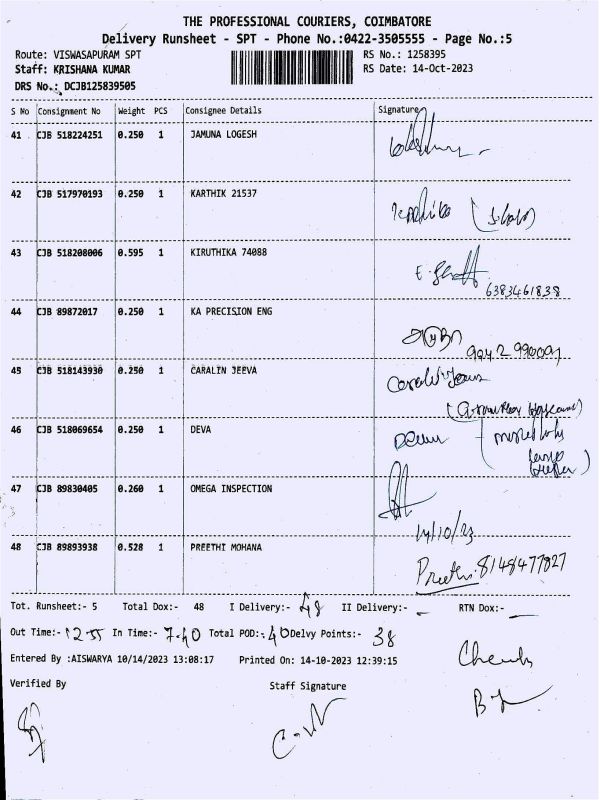 THE PROFESSIONAL COURIERS, COIMBATORE
Delivery Runsheet - SPT - Phone No.:0422-3505555 - Page No.:5
Route: VISWASAPURAM SPT RS No.: 1258395
Staff: KRISHANA KUMAR RS Date: 14-Oct-2023
DRS No.: DCJB125839505
S No Consignment No Weight PCS Consignee Details Signature
41 CJB 518224251 0.250 1 JAMUNA LOGESH
42 CJB 517970193 0.250 1 KARTHIK 21537
43 CJB 518208006 0.595 1 KIRUTHIKA 74088
6383461838
44 CJB 89872017 0.250 1 KA PRECISION ENG
45 CJB 518143930 0.250 1 CARALIN JEEVA
46 CJB 518069654 0.250 1 DEVA
47 CJB 89830405 0.260 1 OMEGA INSPECTION
14/10/23
48 CJB 89893938 0.528 1 PREETHI MOHANA
Preethi 8148477827
Tot. Runsheet:- 5 Total Dox:- 48 I Delivery:- 48 II Delivery:- - RTN Dox:- -
Out Time:- 12-55 In Time:- 7-40 Total POD:- 40 Delvy Points:- 38
Entered By :AISWARYA 10/14/2023 13:08:17 Printed On: 14-10-2023 12:39:15
Verified By Staff Signature